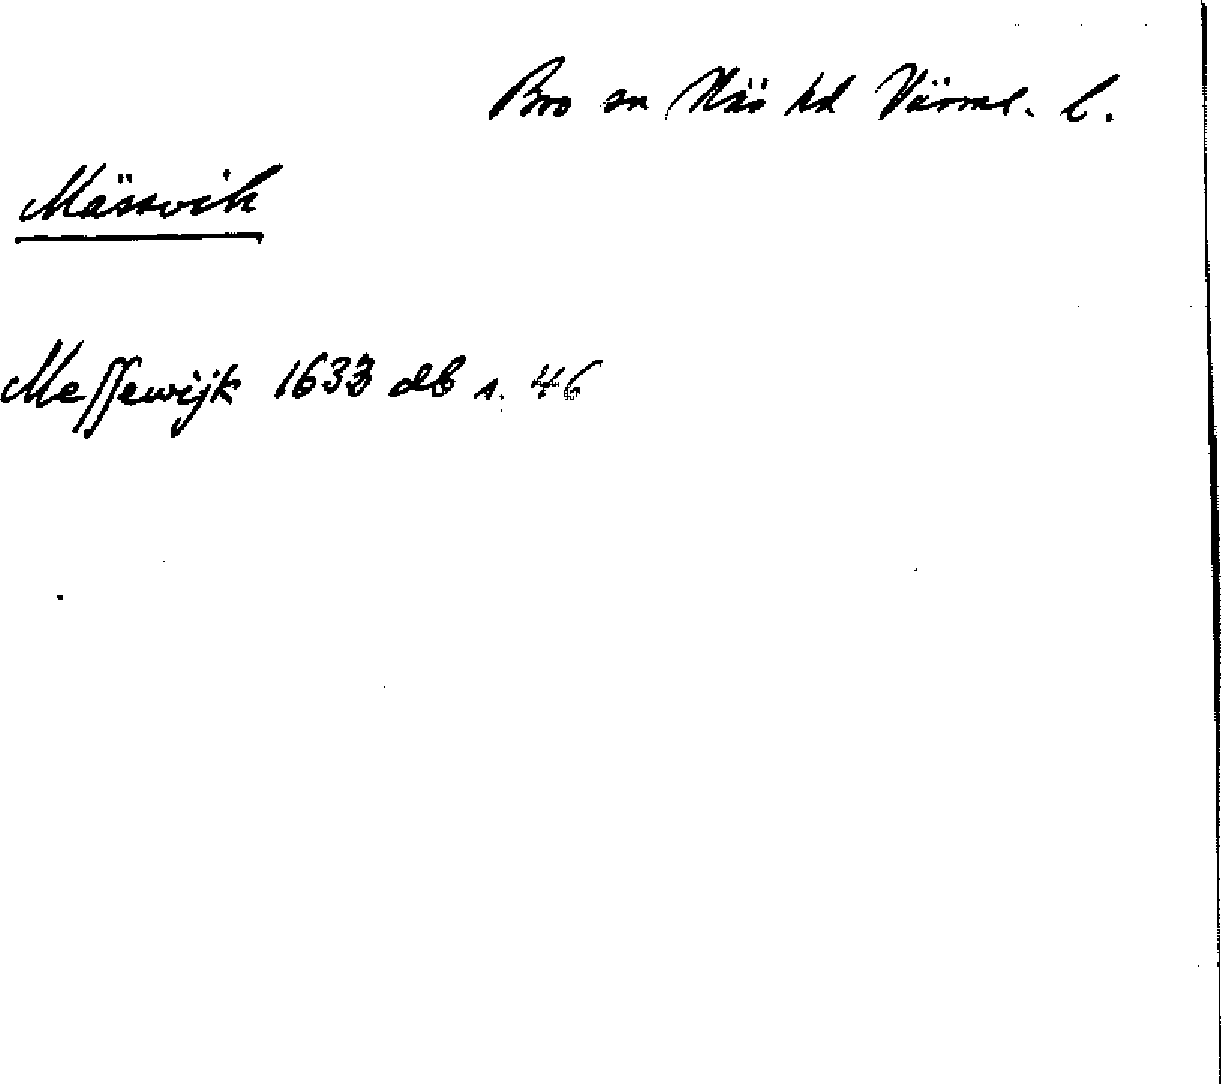 Bro sn Näs hd Värml. l.
Mässvik
Messewijk 1633 db s. 46